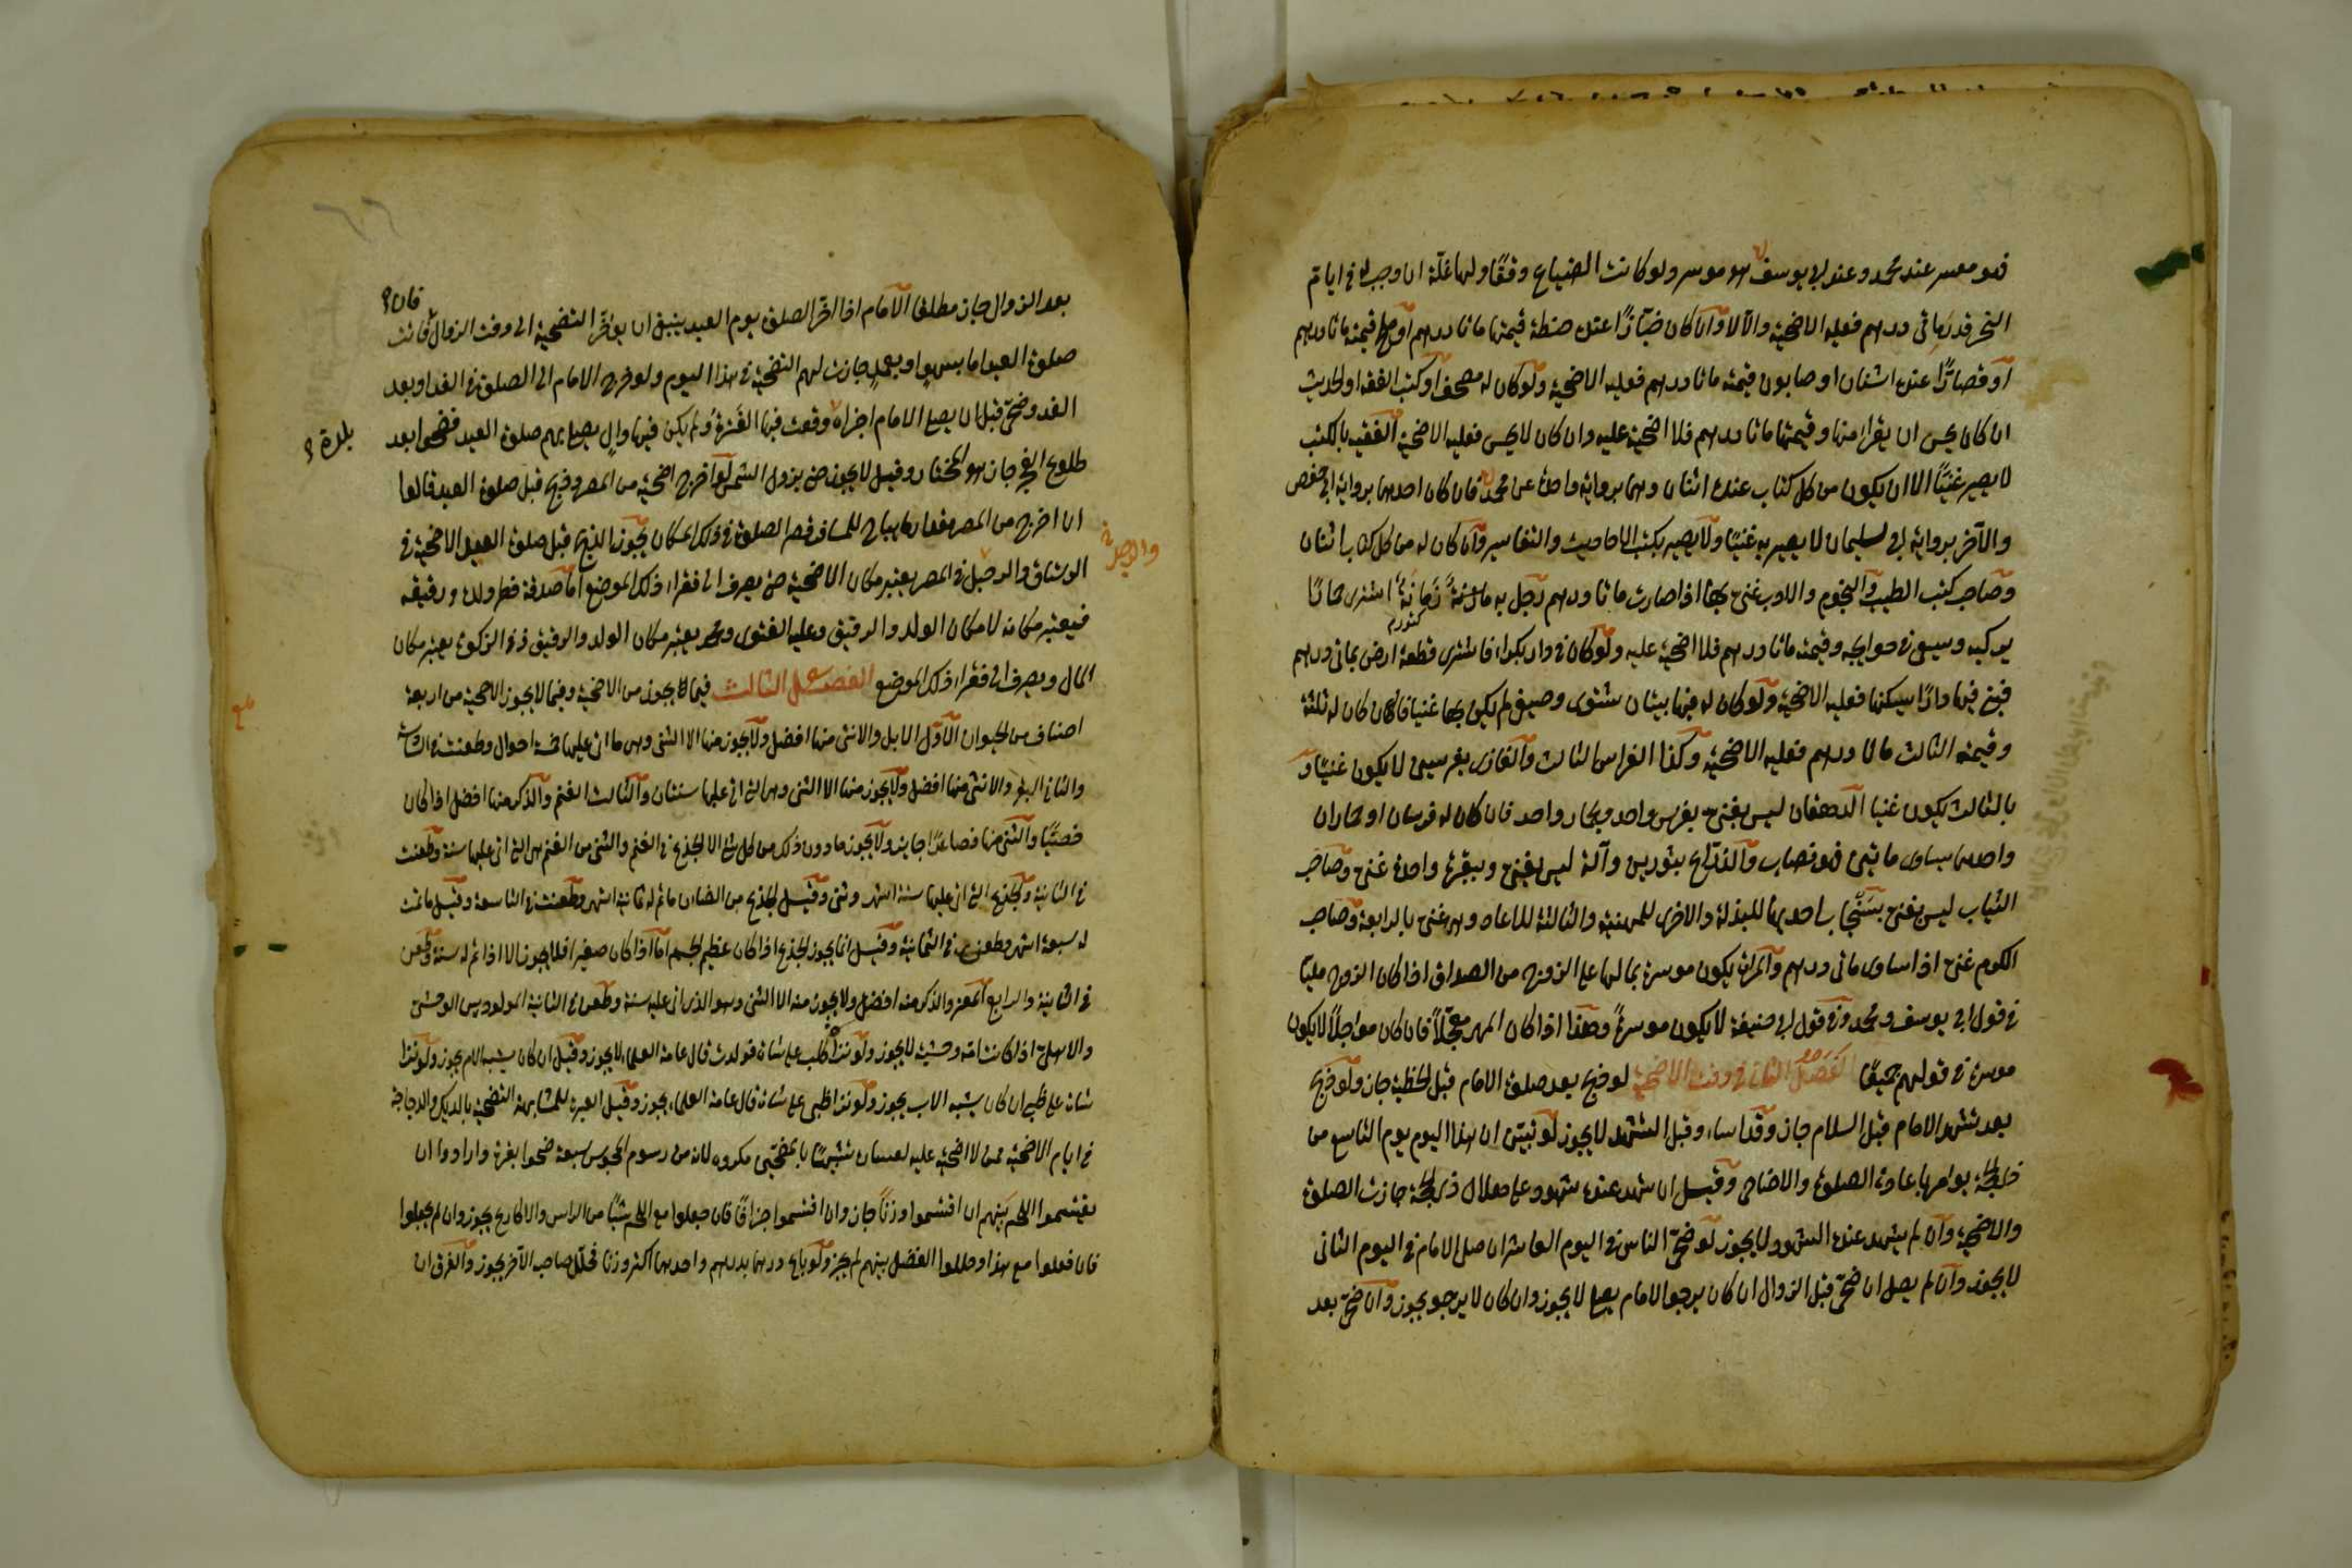 فهو معسر عند محمد وعند ابي يوسف هو موسر ولو كانت الضياع وقفا ولها غلة ان وجب له في ايام
النحر قدر مائتي درهم فعليه الاضحية والا لا وان كان خبازا عنده حنطة قيمتها مائتا درهم او ملح قيمته مائتا درهم
او قصارا عنده اشنان او صابون قيمته مائتا درهم فعليه الاضحية ولو كان له مصحف او كتب الفقه او الحديث
ان كان يحسن ان يقرا منها وقيمتها مائتا درهم فلا اضحية عليه وان كان لا يحسن فعليه الاضحية الفقيه بالكتب
لا يصير غنيا الا ان يكون من كل كتاب عنده اثنان وهما برواية واحدة عن محمد فان كان احدهما برواية ابي حفص
والآخر برواية ابي سليمان لا يصير به غنيا ولا يصير بكتب الاحاديث والتفاسير وان كان له من كل كتاب اثنان
وصاحب كتب الطب والنجوم والادب غني بها اذا صارت مائتا درهم رجل به زمانة اشترى حمارا
يركبه ويسعى في حوايجه وقيمته مائتا درهم فلا اضحية عليه ولو كان في دار بكراء فاشترى قطعة ارض بمائتي درهم
فبنى فيها دارا ليسكنها فعليه الاضحية ولو كان له فيها بيتان شتوي وصيفي لم يكن بها غنيا فان كان له ثلثة
وقيمة الثالث مائتا درهم فعليه الاضحية وكذا الفراس الثالث والغازي بفرسين لا يكون غنيا و
بالثالث يكون غنيا الدهقان ليس بغني بفرس واحد وبحمار واحد فان كان له فرسان او حماران
واحدهما يساوي مائتين فهو نصاب والزراع بثورين وآلة ليس بغني وببقرة واحدة غني وصاحب
الثياب ليس بغني بثلاث احديها للبذلة والاخرى للمهنة والثالثة للاعياد وهو غني بالرابعة وصاحب
الكرم غني اذا ساوى مائتي درهم والمراة يكون موسرة بما لها على الزوج من الصداق اذا كان الزوج مليا
في قول ابي يوسف ومحمد وفي قول ابي حنيفة لا يكون موسرة وهذا اذا كان المهر معجلا فان كان مؤجلا لا يكون
موسرة في قولهم جميعا الفصل الثاني في وقت الاضحية لو ذبح بعد صلوة الامام قبل الخطبة جاز ولو ذبح
بعد تشهد الامام قبل السلام جاز وقد اساء وقبل التشهد لا يجوز لو تبين ان هذا اليوم يوم التاسع من
ذي الحجة يؤمر باعادة الصلوة والاضاحي وقيل ان شهد عنده شهود على هلال ذي الحجة جازت الصلوة
والاضحية وان لم يشهد عنده الشهود لا يجوز لو ضحى الناس في اليوم العاشر ان صلى الامام في اليوم الثاني
لا يجوز وان لم يصل ان ضحى قبل الزوال ان كان يرجو الامام يصلي لا يجوز وان كان لا يرجو يجوز وان ضحى بعد
بعد الزوال جاز مطلقا الامام اذا اخر الصلوة يوم العيد ينبغي ان يؤخر التضحية الى وقت الزوال فان فاتت
صلوة العيد اما بسهو او بعمد جازت لهم التضحية في هذا اليوم ولو خرج الامام الى الصلوة في الغد او بعد
الغد وضحى قبل ان يصلي الامام اجزاه وقعت فيها الفترة ولم يكن فيها وال يصلي بهم صلوة العيد فضحوا بعد
بلدة
طلوع الفجر جاز هو المختار وقيل لا يجوز حتى يزول الشمس لو اخرج اضحية من المصر وذبح قبل صلوة العيد قالوا
ان اخرج من المصر مقدار ما يباح للمسافر قصر الصلوة في ذلك المكان يجوز الذبح قبل صلوة العيد الاضحية في
الرستاق والرجل في المصر يعتبر مكان الاضحية حتى يصرف الى فقراء ذلك الموضع اما صدقة فطر ولده ورقيقه
فيعتبر مكانه لا مكان الولد والرقيق وعليه الفتوى ومحمد يعتبر مكان الولد والرقيق وفي الزكوة يعتبر مكان
المال ويصرف الى فقراء ذلك الموضع الفصل الثالث فيما يجوز من الاضحية وفيما لا يجوز الاضحية من اربعة
اصناف من الحيوان الاول الابل والانثى منها افضل ولا يجوز منها الا الثني وهي ما اتى عليها خمسة احوال وطعنت في السادسة
والثاني البقر والانثى منها افضل ولا يجوز منها الا الثني وهي التي اتى عليها سنتان والثالث الغنم والذكر منها افضل اذا كان
خصيا والثني منها فصاعدا جايز ولا يجوز ما دون ذلك من كل شيء الا الجذع من الغنم والثني من الغنم هي التي اتى عليها سنة وطعنت
في الثانية والجذع التي اتى عليها ستة اشهر وشيء وقيل الجذع من الضان ما تم له ثمانية اشهر وطعنت في التاسعة وقيل ما تمت
له سبعة اشهر وطعن في الثمانية وقيل انما يجوز الجذع اذا كان عظيم الجسم اما اذا كان صغيرا فلا يجوز الا اذا تم له سنة وطعن
في الثانية والرابع المعز والذكر منه افضل ولا يجوز منه الا الثني وهو الذي اتى عليه سنة وطعن في الثانية المولود بين الوحشي
والاهلي اذا كانت امه وحشية لا يجوز ولو نزا كلب على شاة فولدت قال عامة العلماء لا يجوز وقيل ان كان يشبه الام يجوز ولو نزا
شاة على ظبي ان كان يشبه الاب يجوز ولو نزا ظبي على شاة قال عامة العلماء يجوز وقيل العبرة للمشابهة التضحية بالديك والدجاجة
في ايام الاضحية ممن لا اضحية عليه لعسار تشبها بالمضحين مكروه لانه من رسوم المجوس سبعة ضحوا بقرة وارادوا ان
يقتسموا اللحم بينهم ان اقتسموا وزنا جاز وان اقتسموا جزافا فان جعلوا مع اللحم شيئا من الراس والاكارع يجوز وان لم يجعلوا
فان فعلوا مع هذا وحللوا الفضل بينهم لم يجز ولو باع درهما بدرهم واحدهما اكثر وزنا فحلل صاحب الآخر يجوز والفرق ان